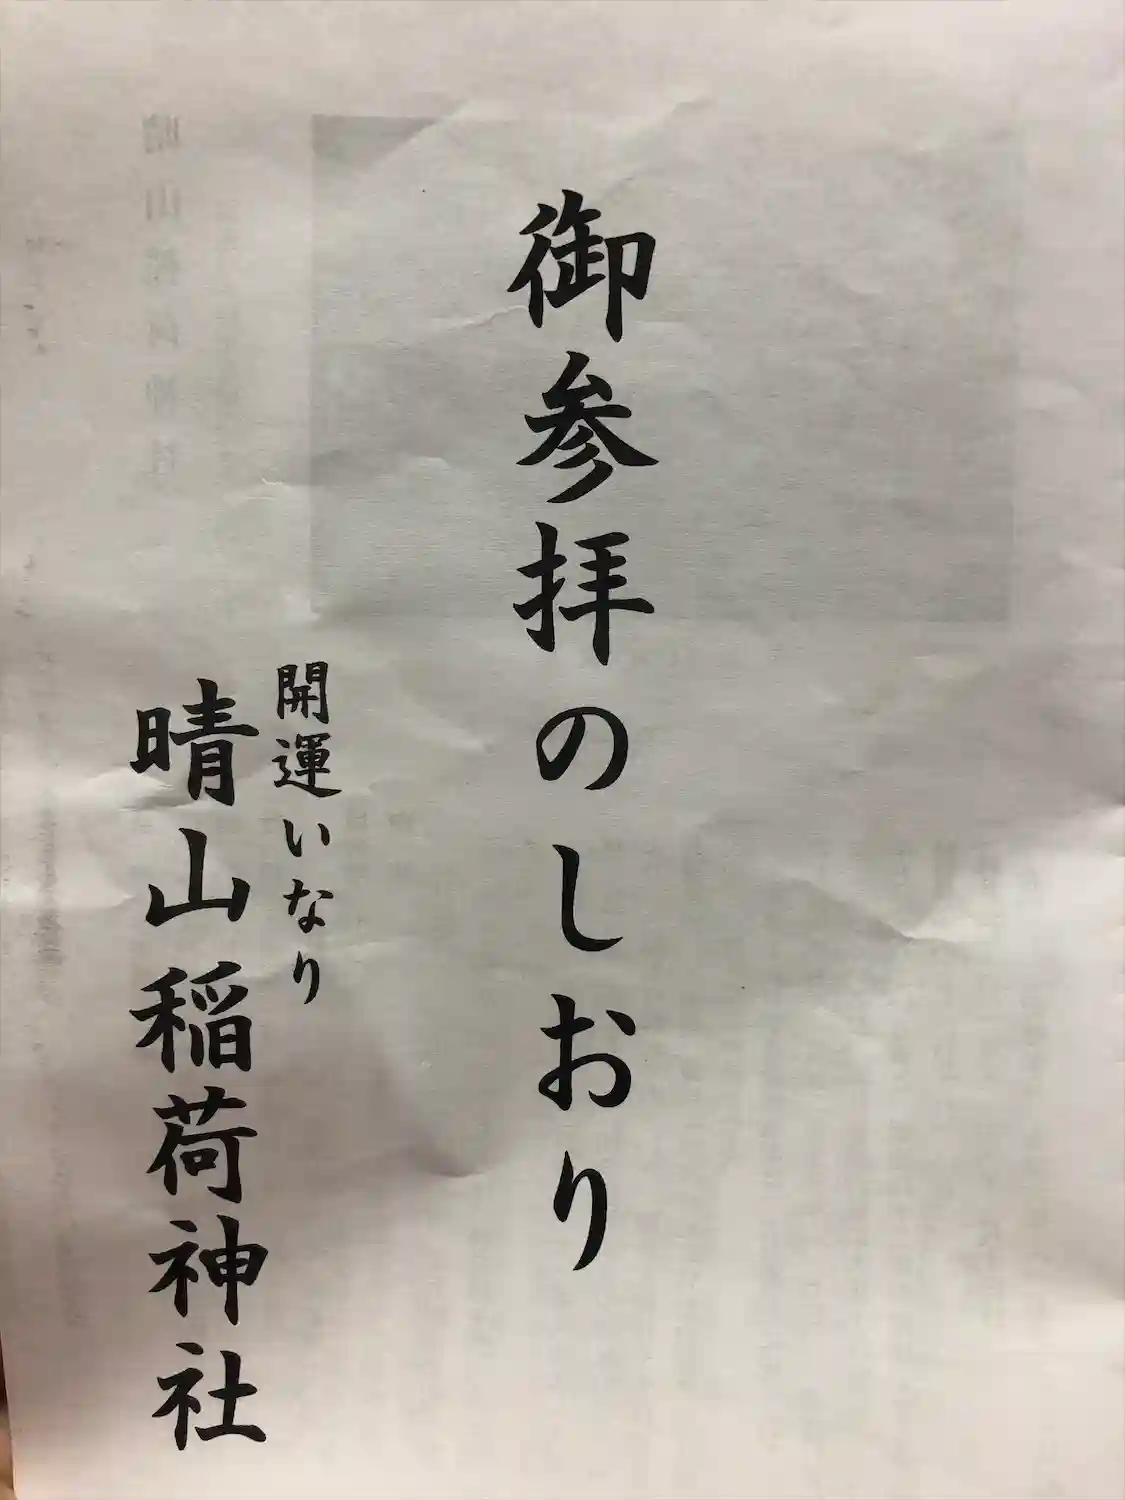 御参拝のしおり
開運いなり
晴山稲荷神社